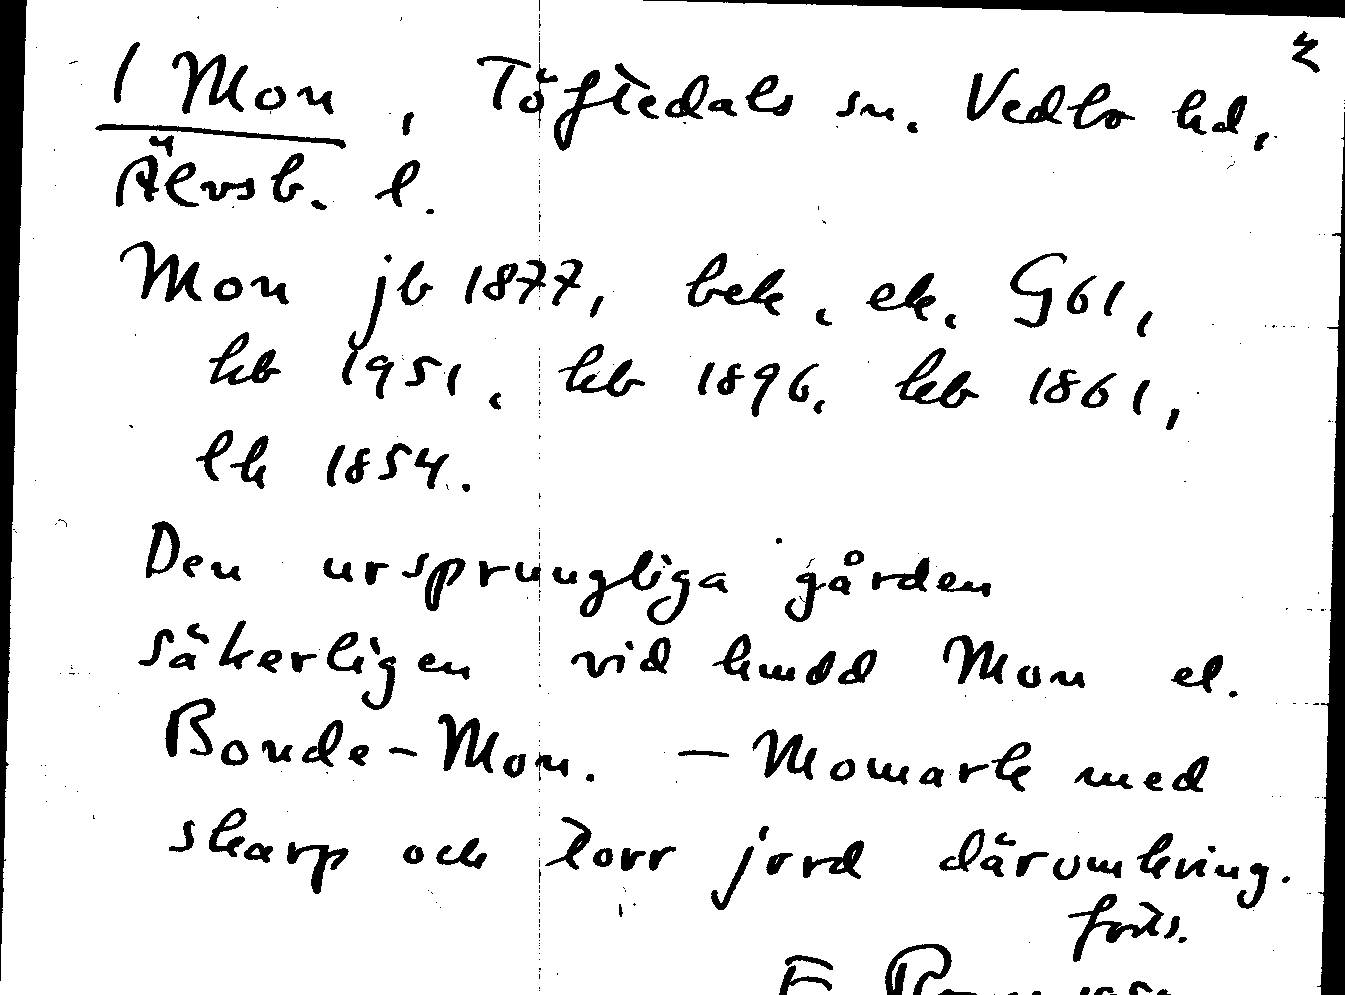 1 Mon, Töftedals sn. Vedbo hd,
Älvsb. l.
Mon jb 1877, bek. ek. G61,
kb 1951, kb 1896, kb 1861,
lk 1854.
Den ursprungliga gården
säkerligen vid hmdd Mon el.
Bonde-Mon. — Momark med
skarp och torr jord däromkring.
forts.